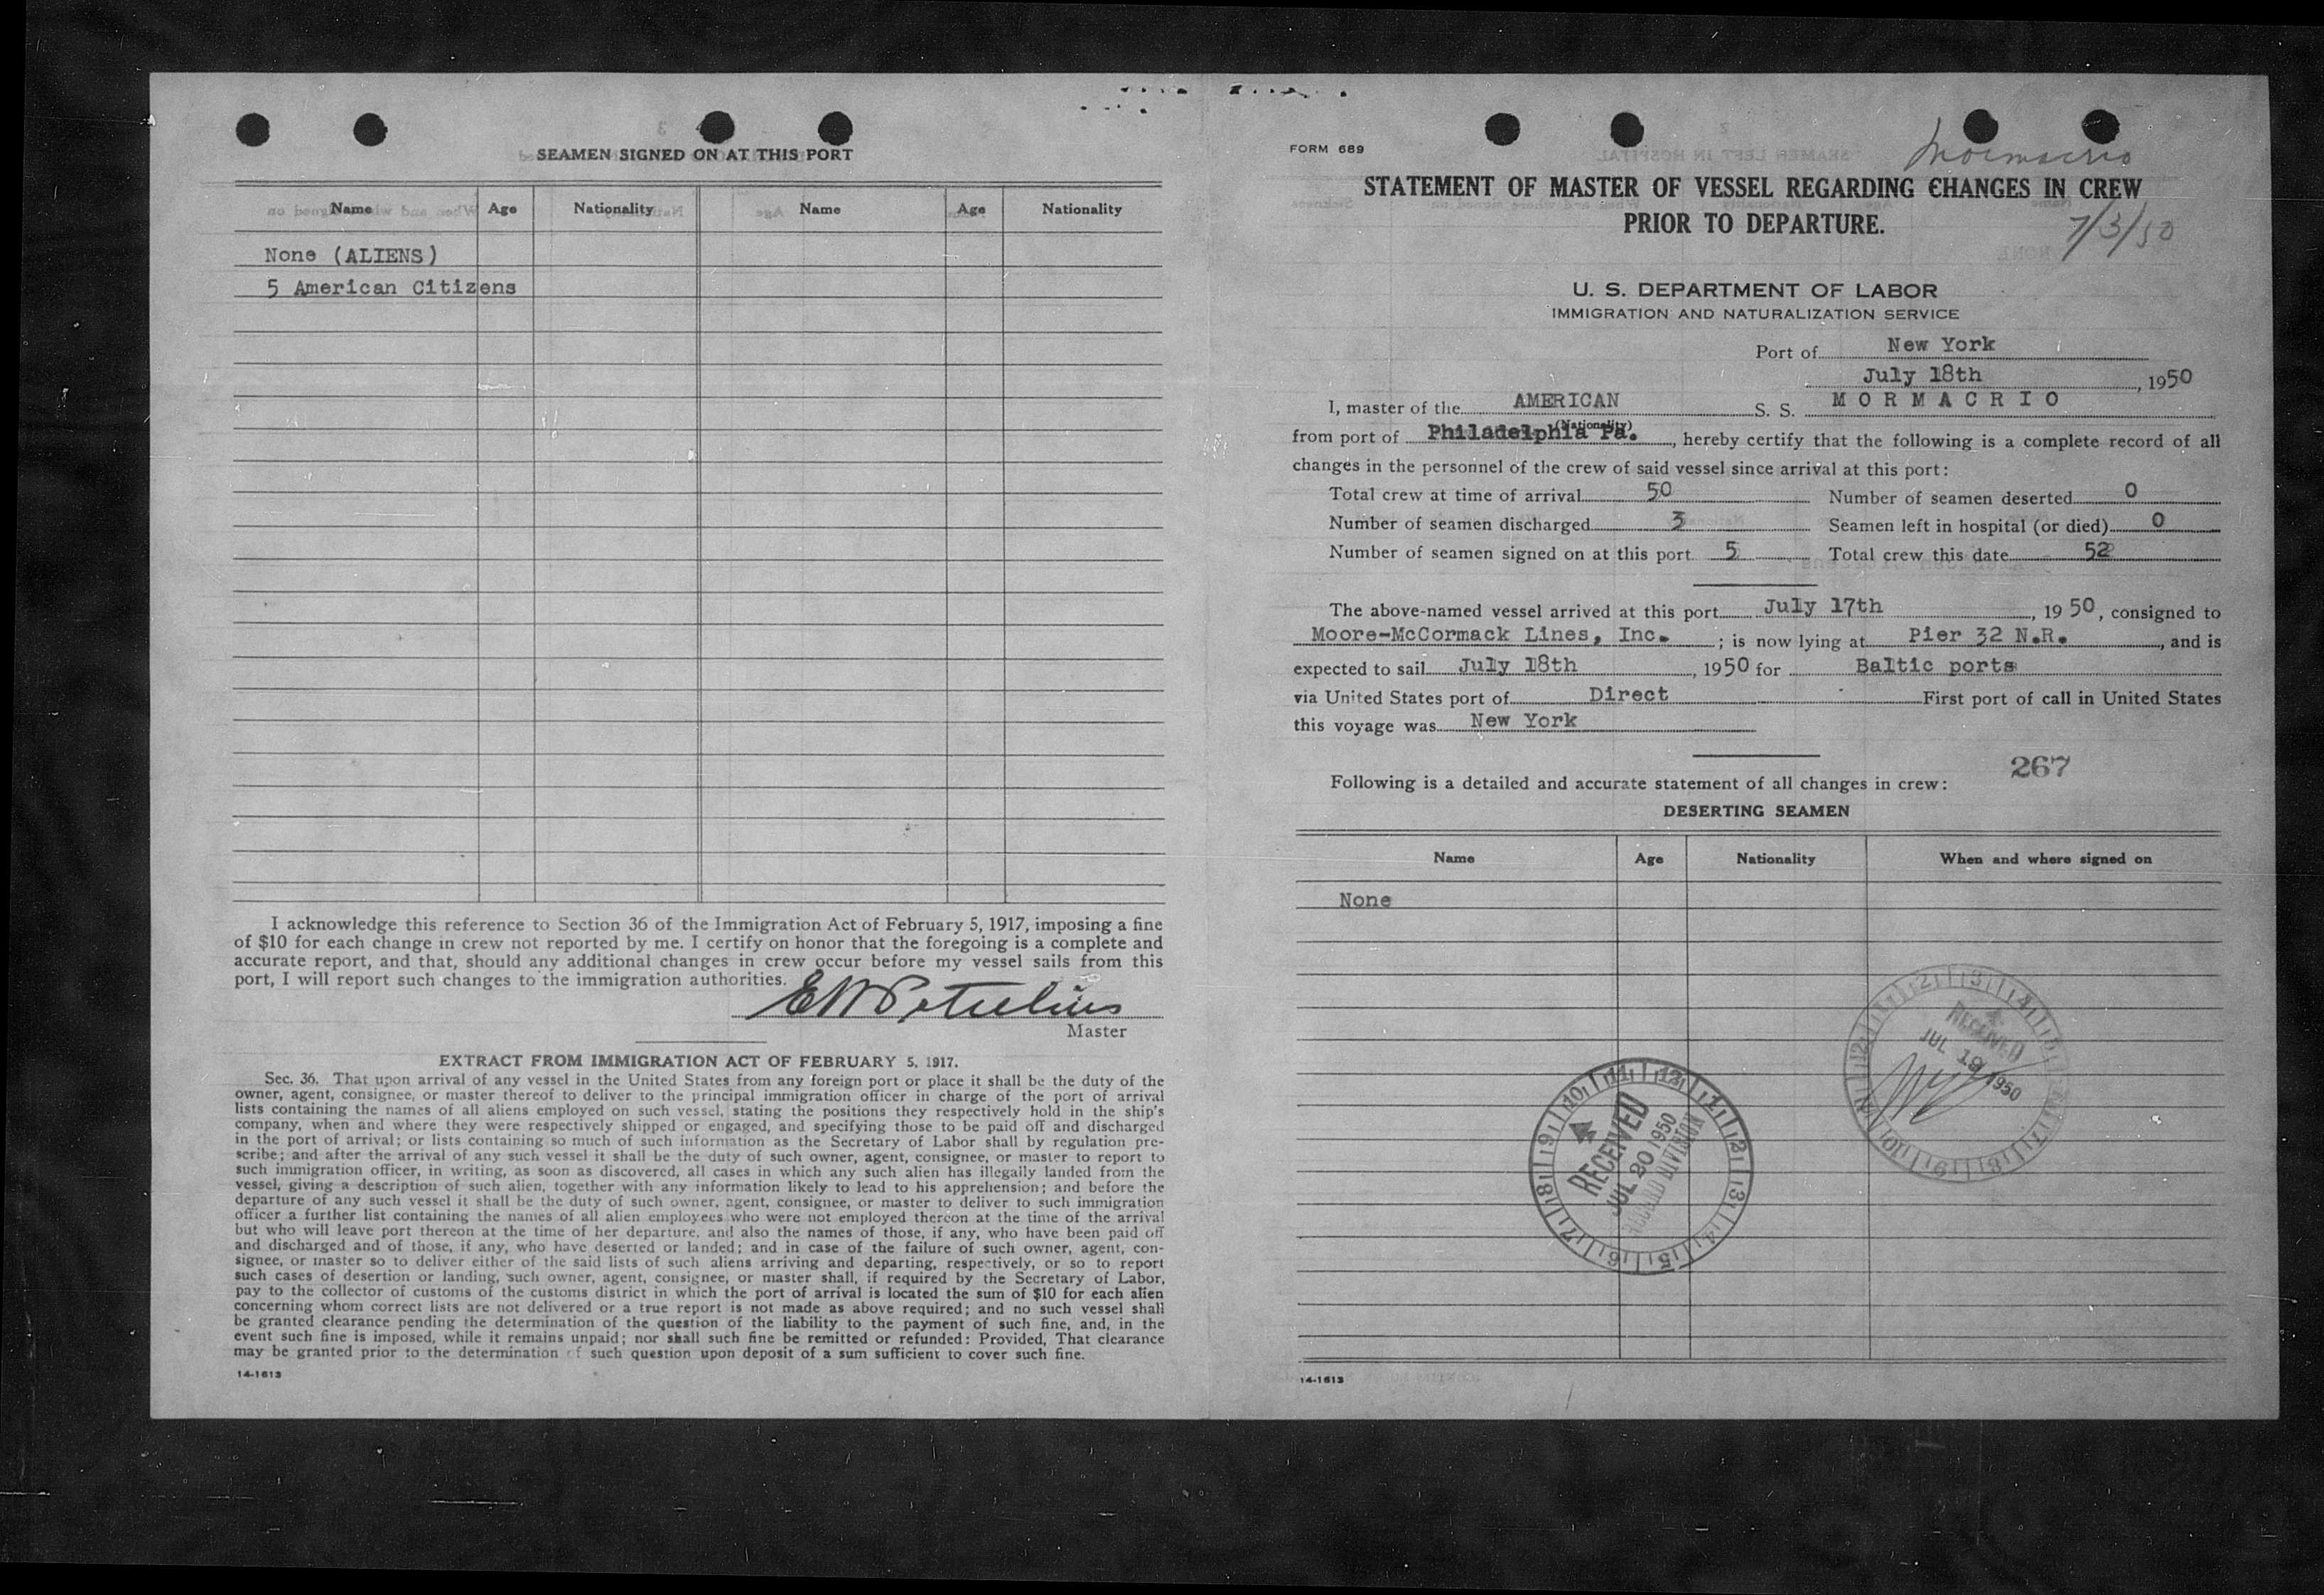 SEAMEN SIGNED ON AT THIS PORT
Name Age Nationality Name Age Nationality
None (ALIENS)
5 American Citizens
I acknowledge this reference to Section 36 of the Immigration Act of February 5, 1917, imposing a fine
of $10 for each change in crew not reported by me. I certify on honor that the foregoing is a complete and
accurate report, and that, should any additional changes in crew occur before my vessel sails from this
port, I will report such changes to the immigration authorities.
Master
EXTRACT FROM IMMIGRATION ACT OF FEBRUARY 5, 1917.
Sec. 36. That upon arrival of any vessel in the United States from any foreign port or place it shall be the duty of the
owner, agent, consignee, or master thereof to deliver to the principal immigration officer in charge of the port of arrival
lists containing the names of all aliens employed on such vessel, stating the positions they respectively hold in the ship's
company, when and where they were respectively shipped or engaged, and specifying those to be paid off and discharged
in the port of arrival; or lists containing so much of such information as the Secretary of Labor shall by regulation pre-
scribe; and after the arrival of any such vessel it shall be the duty of such owner, agent, consignee, or master to report to
such immigration officer, in writing, as soon as discovered, all cases in which any such alien has illegally landed from the
vessel, giving a description of such alien, together with any information likely to lead to his apprehension; and before the
departure of any such vessel it shall be the duty of such owner, agent, consignee, or master to deliver to such immigration
officer a further list containing the names of all alien employees who were not employed thereon at the time of the arrival
but who will leave port thereon at the time of her departure, and also the names of those, if any, who have been paid off
and discharged and of those, if any, who have deserted or landed; and in case of the failure of such owner, agent, con-
signee, or master so to deliver either of the said lists of such aliens arriving and departing, respectively, or so to report
such cases of desertion or landing, such owner, agent, consignee, or master shall, if required by the Secretary of Labor,
pay to the collector of customs of the customs district in which the port of arrival is located the sum of $10 for each alien
concerning whom correct lists are not delivered or a true report is not made as above required; and no such vessel shall
be granted clearance pending the determination of the question of the liability to the payment of such fine, and, in the
event such fine is imposed, while it remains unpaid; nor shall such fine be remitted or refunded: Provided, That clearance
may be granted prior to the determination of such question upon deposit of a sum sufficient to cover such fine.
14-1613
FORM 689
Mormacrio
STATEMENT OF MASTER OF VESSEL REGARDING CHANGES IN CREW
PRIOR TO DEPARTURE.
7/3/50
U. S. DEPARTMENT OF LABOR
IMMIGRATION AND NATURALIZATION SERVICE
Port of New York
July 18th, 1950
I, master of the AMERICAN S. S. MORMACRIO
(Nationality)
from port of Philadelphia Pa., hereby certify that the following is a complete record of all
changes in the personnel of the crew of said vessel since arrival at this port:
Total crew at time of arrival 50 Number of seamen deserted 0
Number of seamen discharged 3 Seamen left in hospital (or died) 0
Number of seamen signed on at this port 5 Total crew this date 52
The above-named vessel arrived at this port July 17th, 1950, consigned to
Moore-McCormack Lines, Inc. ; is now lying at Pier 32 N.R., and is
expected to sail July 18th, 1950 for Baltic ports
via United States port of Direct First port of call in United States
this voyage was New York
267
Following is a detailed and accurate statement of all changes in crew:
DESERTING SEAMEN
Name Age Nationality When and where signed on
None
RECEIVED
JUL 19 1950
RECEIVED
JUL 20 1950
RECORD DIVISION
14-1613